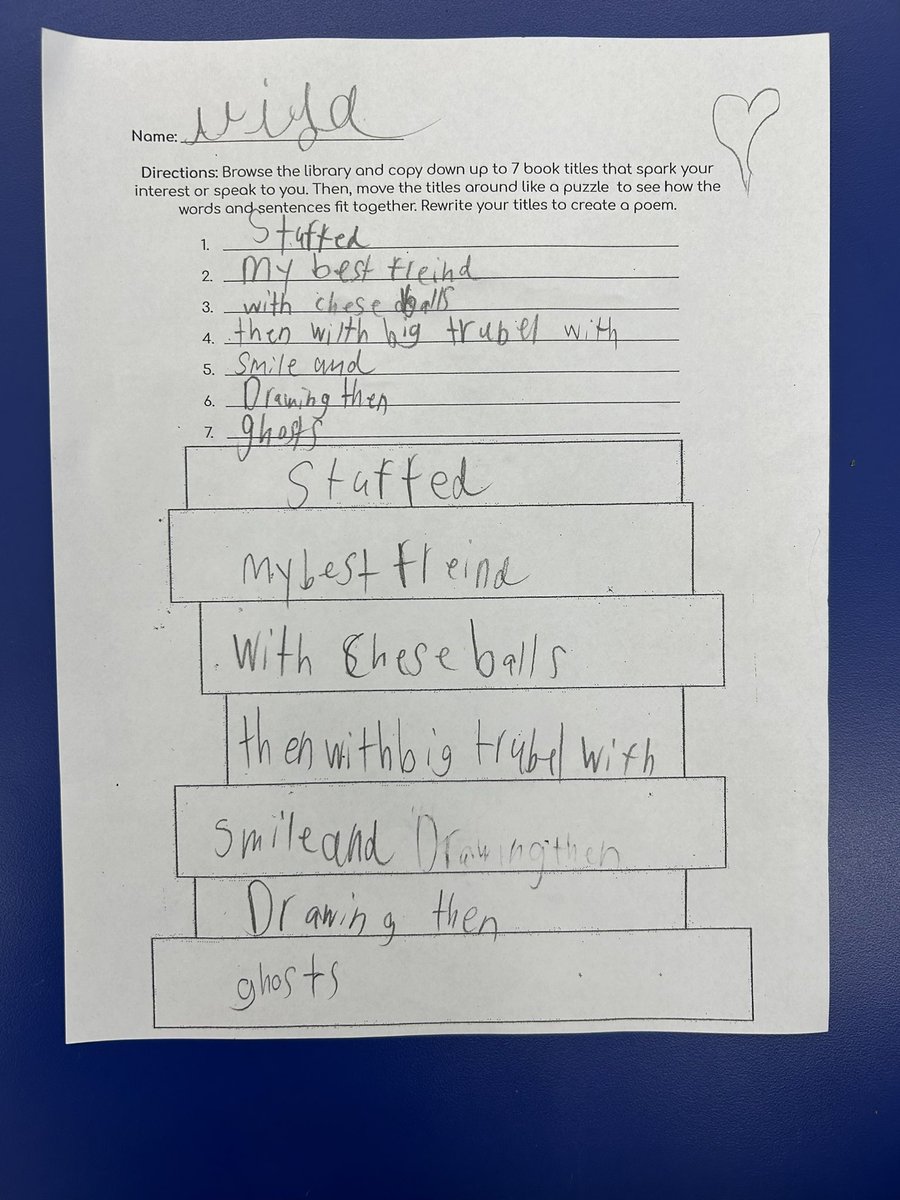 Name:
Directions: Browse the library and copy down up to 7 book titles that spark your
interest or speak to you. Then, move the titles around like a puzzle to see how the
words and sentences fit together. Rewrite your titles to create a poem.
1. Stuffed
2. My best freind
3. with chese balls
4. then wilth big trubel with
5. Smile and
6. Drawing then
7. ghosts
Stuffed
my best freind
With Chese balls
then with big trubel with
Smile and Drawing then
Drawing then
ghosts